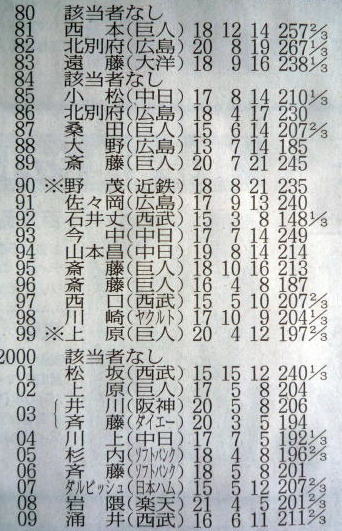 80 該当者なし
81 西本(巨人) 18 12 14 257⅔
82 北別府(広島) 20 8 19 267⅓
83 遠藤(大洋) 18 9 16 238⅓
84 該当者なし
85 小松(中日) 17 8 14 210⅓
86 北別府(広島) 18 4 17 230
87 桑田(巨人) 15 6 14 207⅔
88 大野(広島) 13 7 14 185
89 斎藤(巨人) 20 7 21 245
90 ※野茂(近鉄) 18 8 21 235
91 佐々岡(広島) 17 9 13 240
92 石井丈(西武) 15 3 8 148⅓
93 今中(中日) 17 7 14 249
94 山本昌(中日) 19 8 14 214
95 斎藤(巨人) 18 10 16 213
96 斎藤(巨人) 16 4 8 187
97 西口(西武) 15 5 10 207⅔
98 川崎(ヤクルト) 17 10 9 204⅓
99 ※上原(巨人) 20 4 12 197⅔
2000 該当者なし
01 松坂(西武) 15 15 12 240⅓
02 上原(巨人) 17 5 8 204
03 井川(阪神) 20 5 8 206
斉藤(ダイエー) 20 3 5 194
04 川上(中日) 17 7 5 192⅓
05 杉内(ソフトバンク) 18 4 8 196⅔
06 斉藤(ソフトバンク) 18 5 8 201
07 ダルビッシュ(日本ハム) 15 5 12 207⅔
08 岩隈(楽天) 21 4 5 201⅔
09 涌井(西武) 16 6 11 211⅔